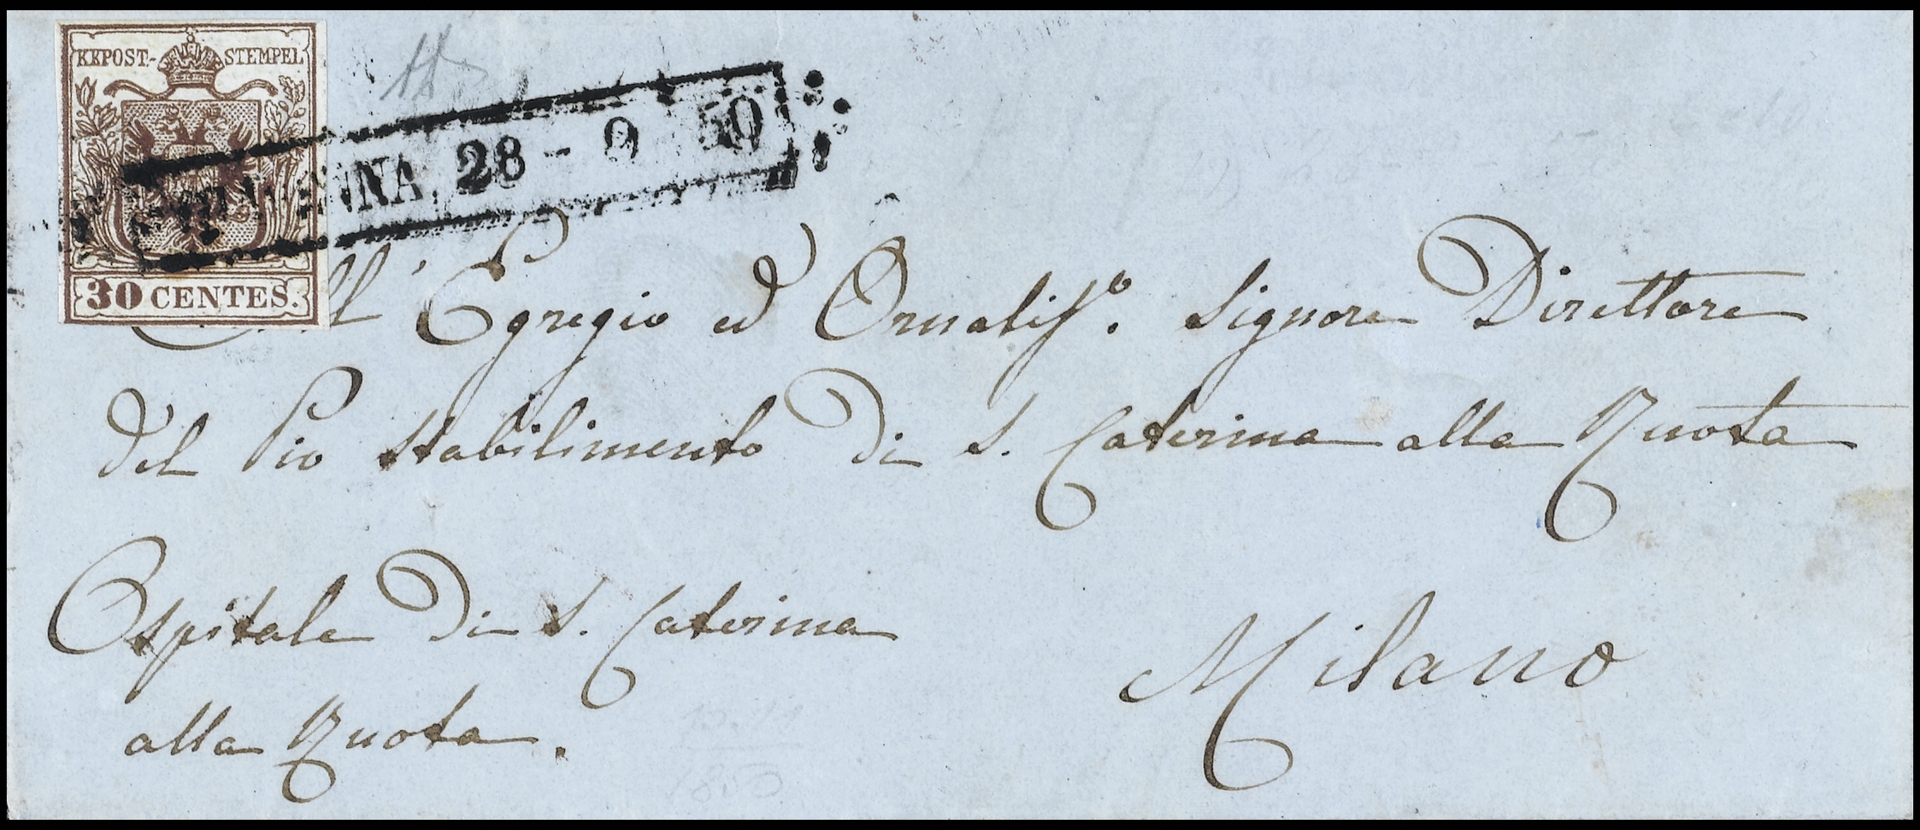 KKPOST-STEMPEL
30 CENTES.
NNA. 28 - 9 50
All' Egregio ed Ornatiss.º Signore Direttore
del Pio Stabilimento di S. Caterina alla Ruota
Ospitale di S. Caterina
alla Ruota.
Milano